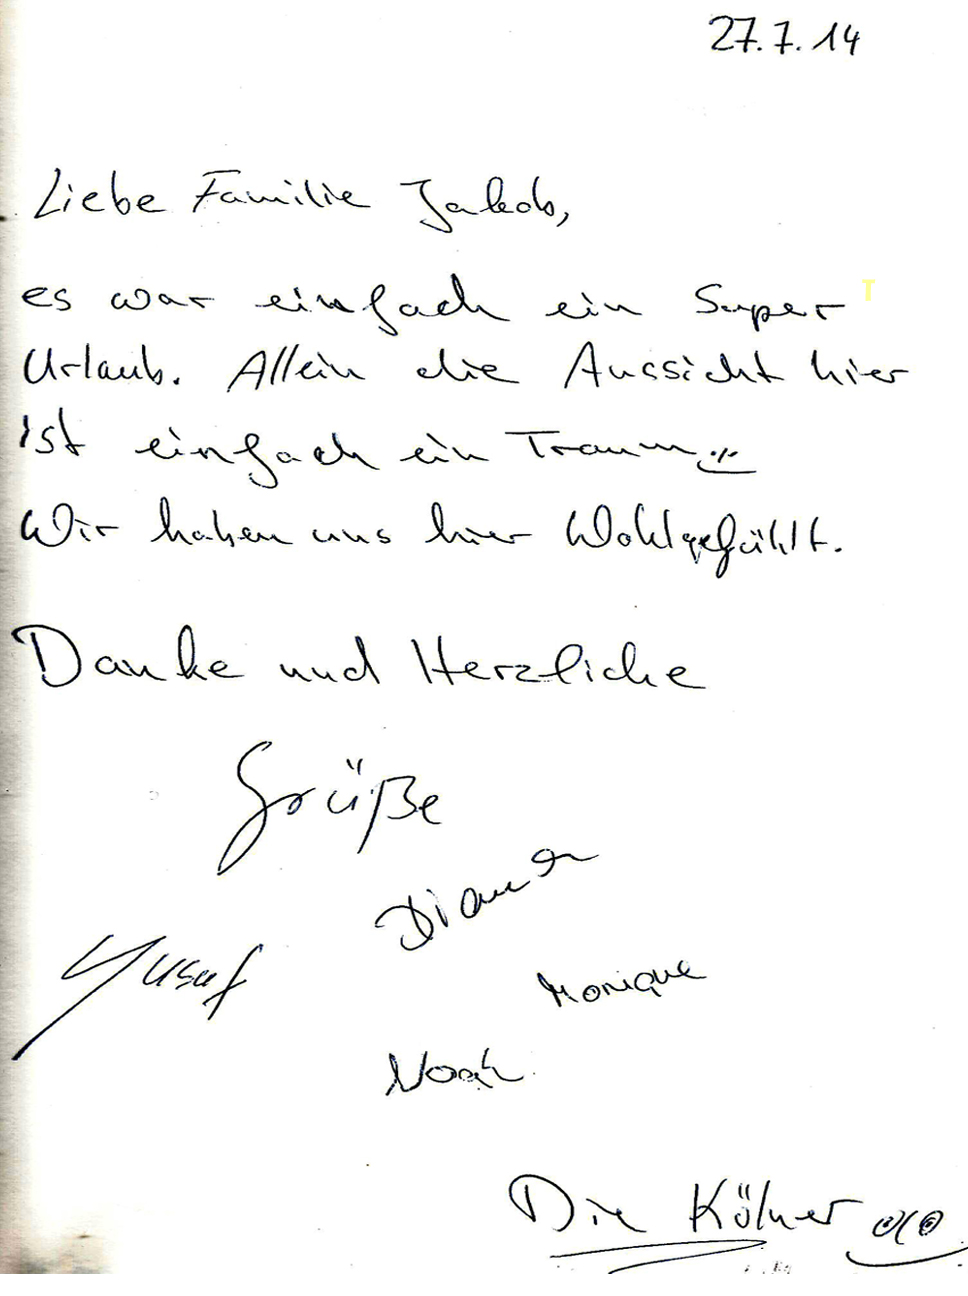 27.7.14
Liebe Familie Jakob,
es war einfach ein Super
Urlaub. Allein die Aussicht hier
ist einfach ein Traum
Wir haben uns hier Wohlgefühlt.
Danke und Herzliche
Grüße
Diana
Yusuf
Monique
Noah
Die Kölner